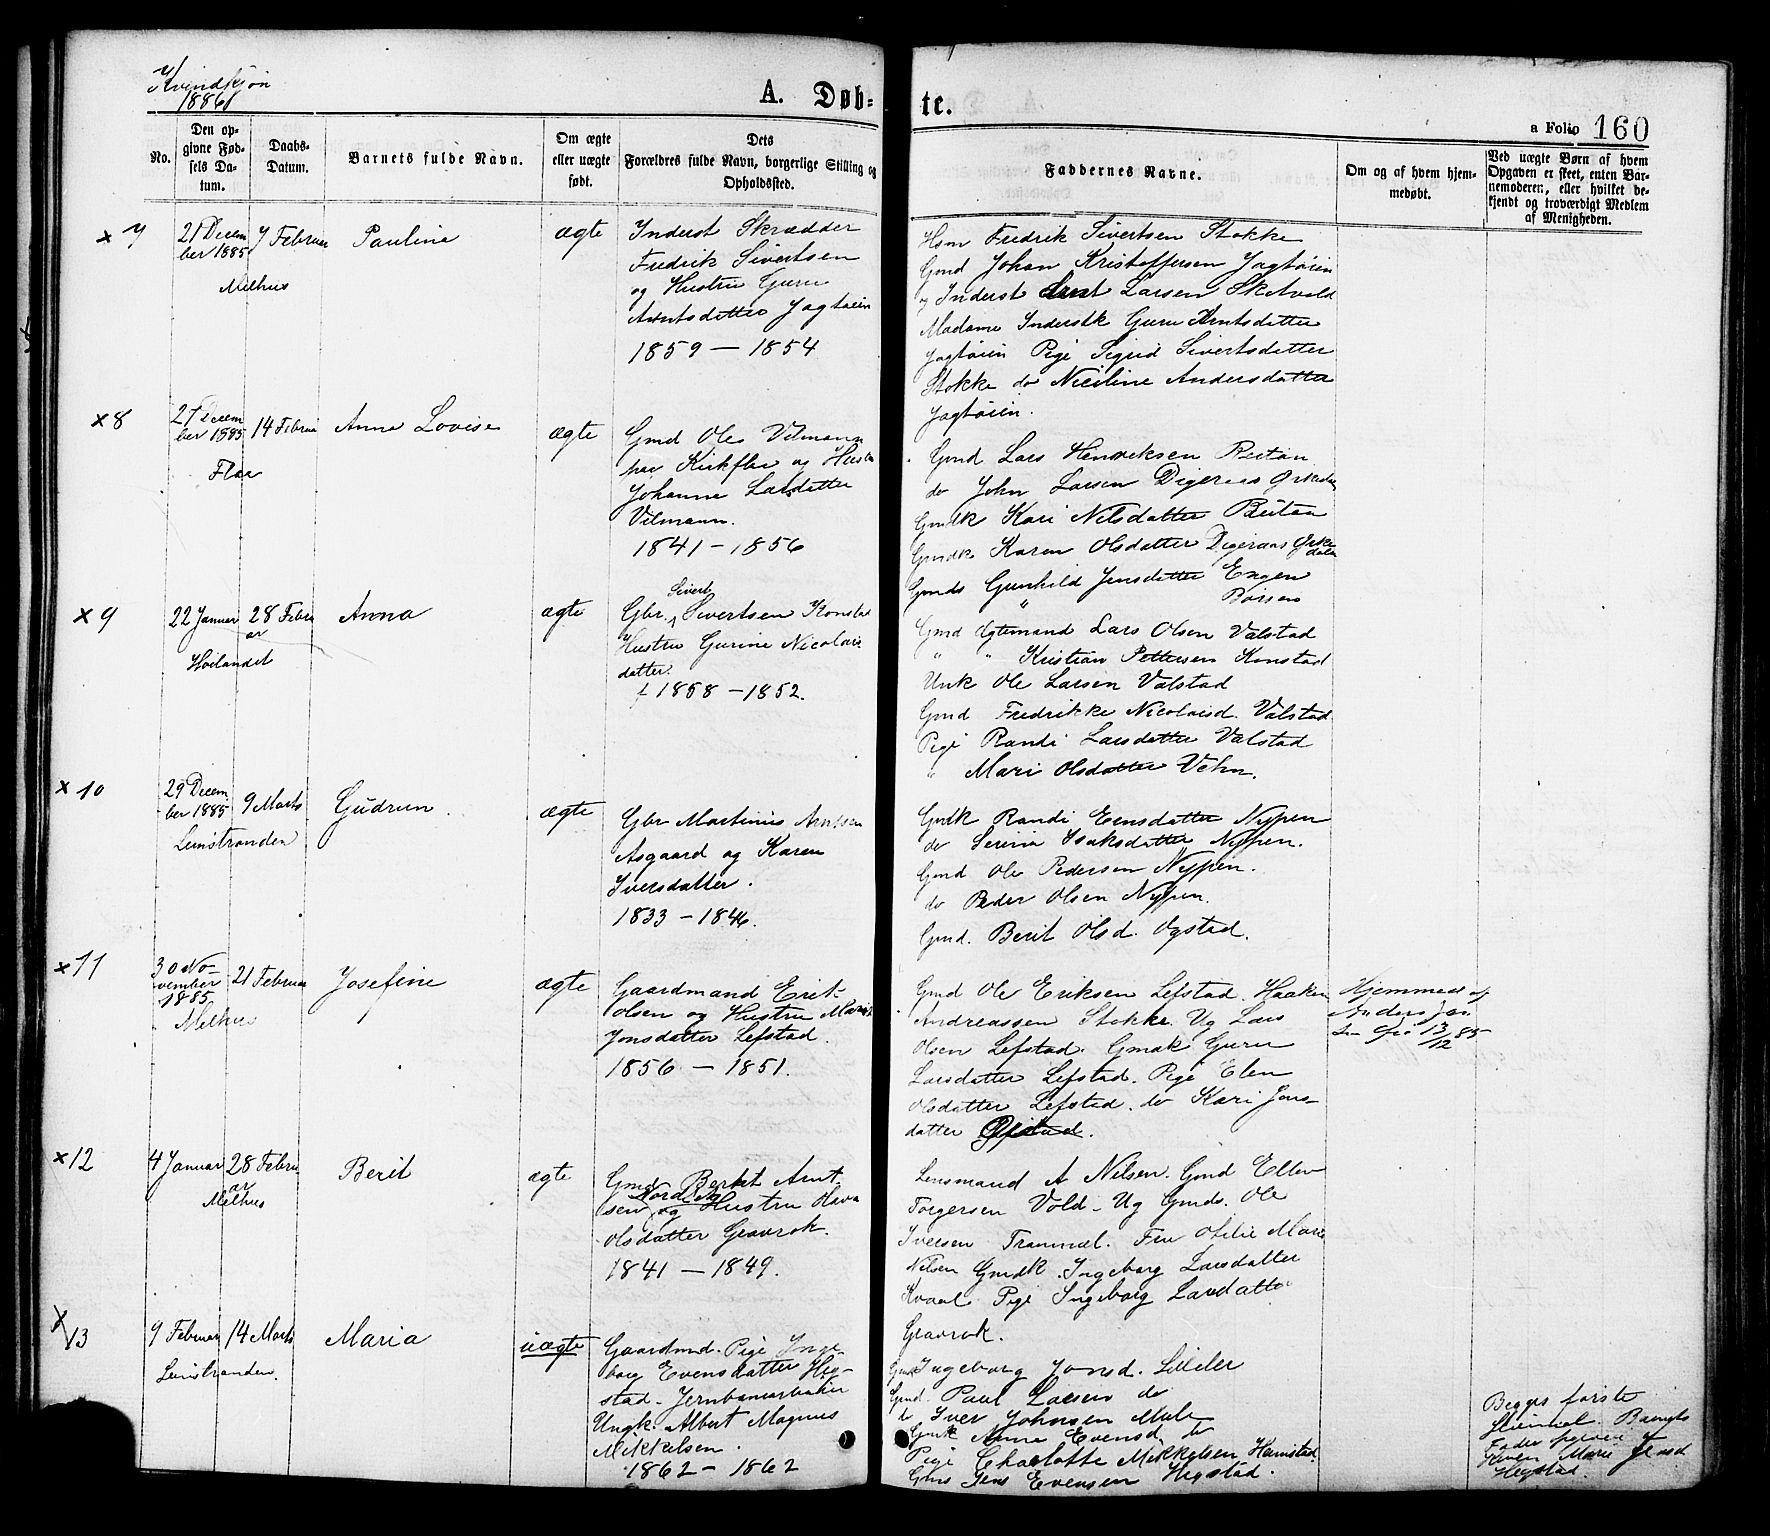 Kvindkjøn
1886
A. Døb-
te.
a Folio 160
No.
Den op-
givne Fød-
sels Da-
tum.
Daabs-
Datum.
Barnets fulde Navn.
Om ægte
eller uægte
født.
Dets
Forældres fulde Navn, borgerlige Stilling og
Opholdssted.
Faddernes Navne.
Om og af hvem hjem-
medøbt.
Ved uægte Børn af hvem
Opgaven er skeet, enten Bar-
nemoderen, eller hvilket be-
kjendt og troværdigt Medlem
af Menigheden.
x 7
21 Decem
ber 1885
Melhus
7 Februar
Pauline
ægte
Inderst Skrædder
Fredrik Sivertsen
og Hustru Guru
Arntsdatter Jagtøien
1859 – 1854
Hsm Fredrik Sivertsen Stokke
Gmd Johan Kristoffersen Jagtøien
og Inderst Arnt Larsen Sketvold
Madame Inderstk Guru Arntsdatter
Jagtøien Pige Sigrid Sivertsdatter
Stokke do Nicoline Andersdatter
Jagtøien.
x 8
27 Decem
ber 1885
Flaa
14 Februa
Anna Lovise
ægte
Gmd Ole Vilmann
paa Kirkflaa og Hustru
Johanna Larsdatter
Vilmann.
1841 – 1856
Gmd Lars Henriksen Reitan
do John Larsen Digeraas Orkedalen
Gmdk Kari Nilsdatter Reitan
Gmdk Karen Olsdatter Digeraas Orke
dalen
Gmds Gunhild Jensdatter Engen
" Børsen
x 9
22 Januar
Høilandet
28 Febru
ar
Anna
ægte
Sivert
Gbr. Sivertsen Konstad
Hustru Gurine Nicolais
datter.
1858 – 1852.
Gmd Ogtemand Lars Olsen Valstad
" " Kristian Pettersen Konstad
Unk Ole Larsen Valstad
Gmd Fredrikke Nicolaisd. Valstad
Pige Randi Larsdatter Valstad
" Mari Olsdatter Vehn.
x 10
29 Decem
ber 1885
Leinstranden
9 Marts
Gudrun
ægte
Gbr Martinus Arntsen
Asgaard og Karen
Iversdatter.
1833 – 1846.
Gmdk Randi Ernsdatter Nypen
do Serina Isaksdatter Nypen.
Gmd Ole Pedersen Nypen.
do Peder Olsen Nypen.
Gmd. Berit Olsd. Ogstad.
x 11
30 No-
vember
1885
Melhus
21 Februar
Josefine
ægte
Gaardmand Erik
Olsen og Hustru Marit
Jonsdatter Lefstad.
1856 – 1851.
Gmd Ole Eriksen Lefstad. Haaken
Andreassen Stokke. Ug Lars
Olsen Lefstad. Gmdk Guru
Larsdatter Lefstad. Pige Elen
Olsdatter Lefstad. do Kari Jons-
datter
Hjemmed af
Anders Jan
13/12 85
x 12
4 Januar
Melhus
28 Febru
ar
Berit
ægte
Gmd Berket Arnt-
sen og Hustru Hava
Olsdatter Gravrok.
1841 – 1849.
Lensmand A Nilsen. Gmd Ellev
Torgersen Vold – Ug Gmds. Ole
Iversen Tranmæl. Fru Otilie Marie
Nilsen Gmdk. Ingeborg Larsdatter
Kvaal Pige Ingeborg Larsdatter
Gravrok.
x 13
9 Februar
Leinstranden.
14 Marts
Maria
uægte
Gaardmd. Pige Inge-
borg Evensdatter Heg-
stad – Jernbanearbeider
Ungk. Albert Magnus
Mikkelsen.
1862 – 1862
Gmdk Ingeborg Jonsd. Litleler
Gmd. Paul Larsen do
do Iver Johnsen Mule
Gmdk Anna Evensd. do
Pige Charlotte Mikkelsen Hamstad.
Gms Jens Evensen Hegstad.
Begges første
Barnets
Fader
Marie
Hegstad.